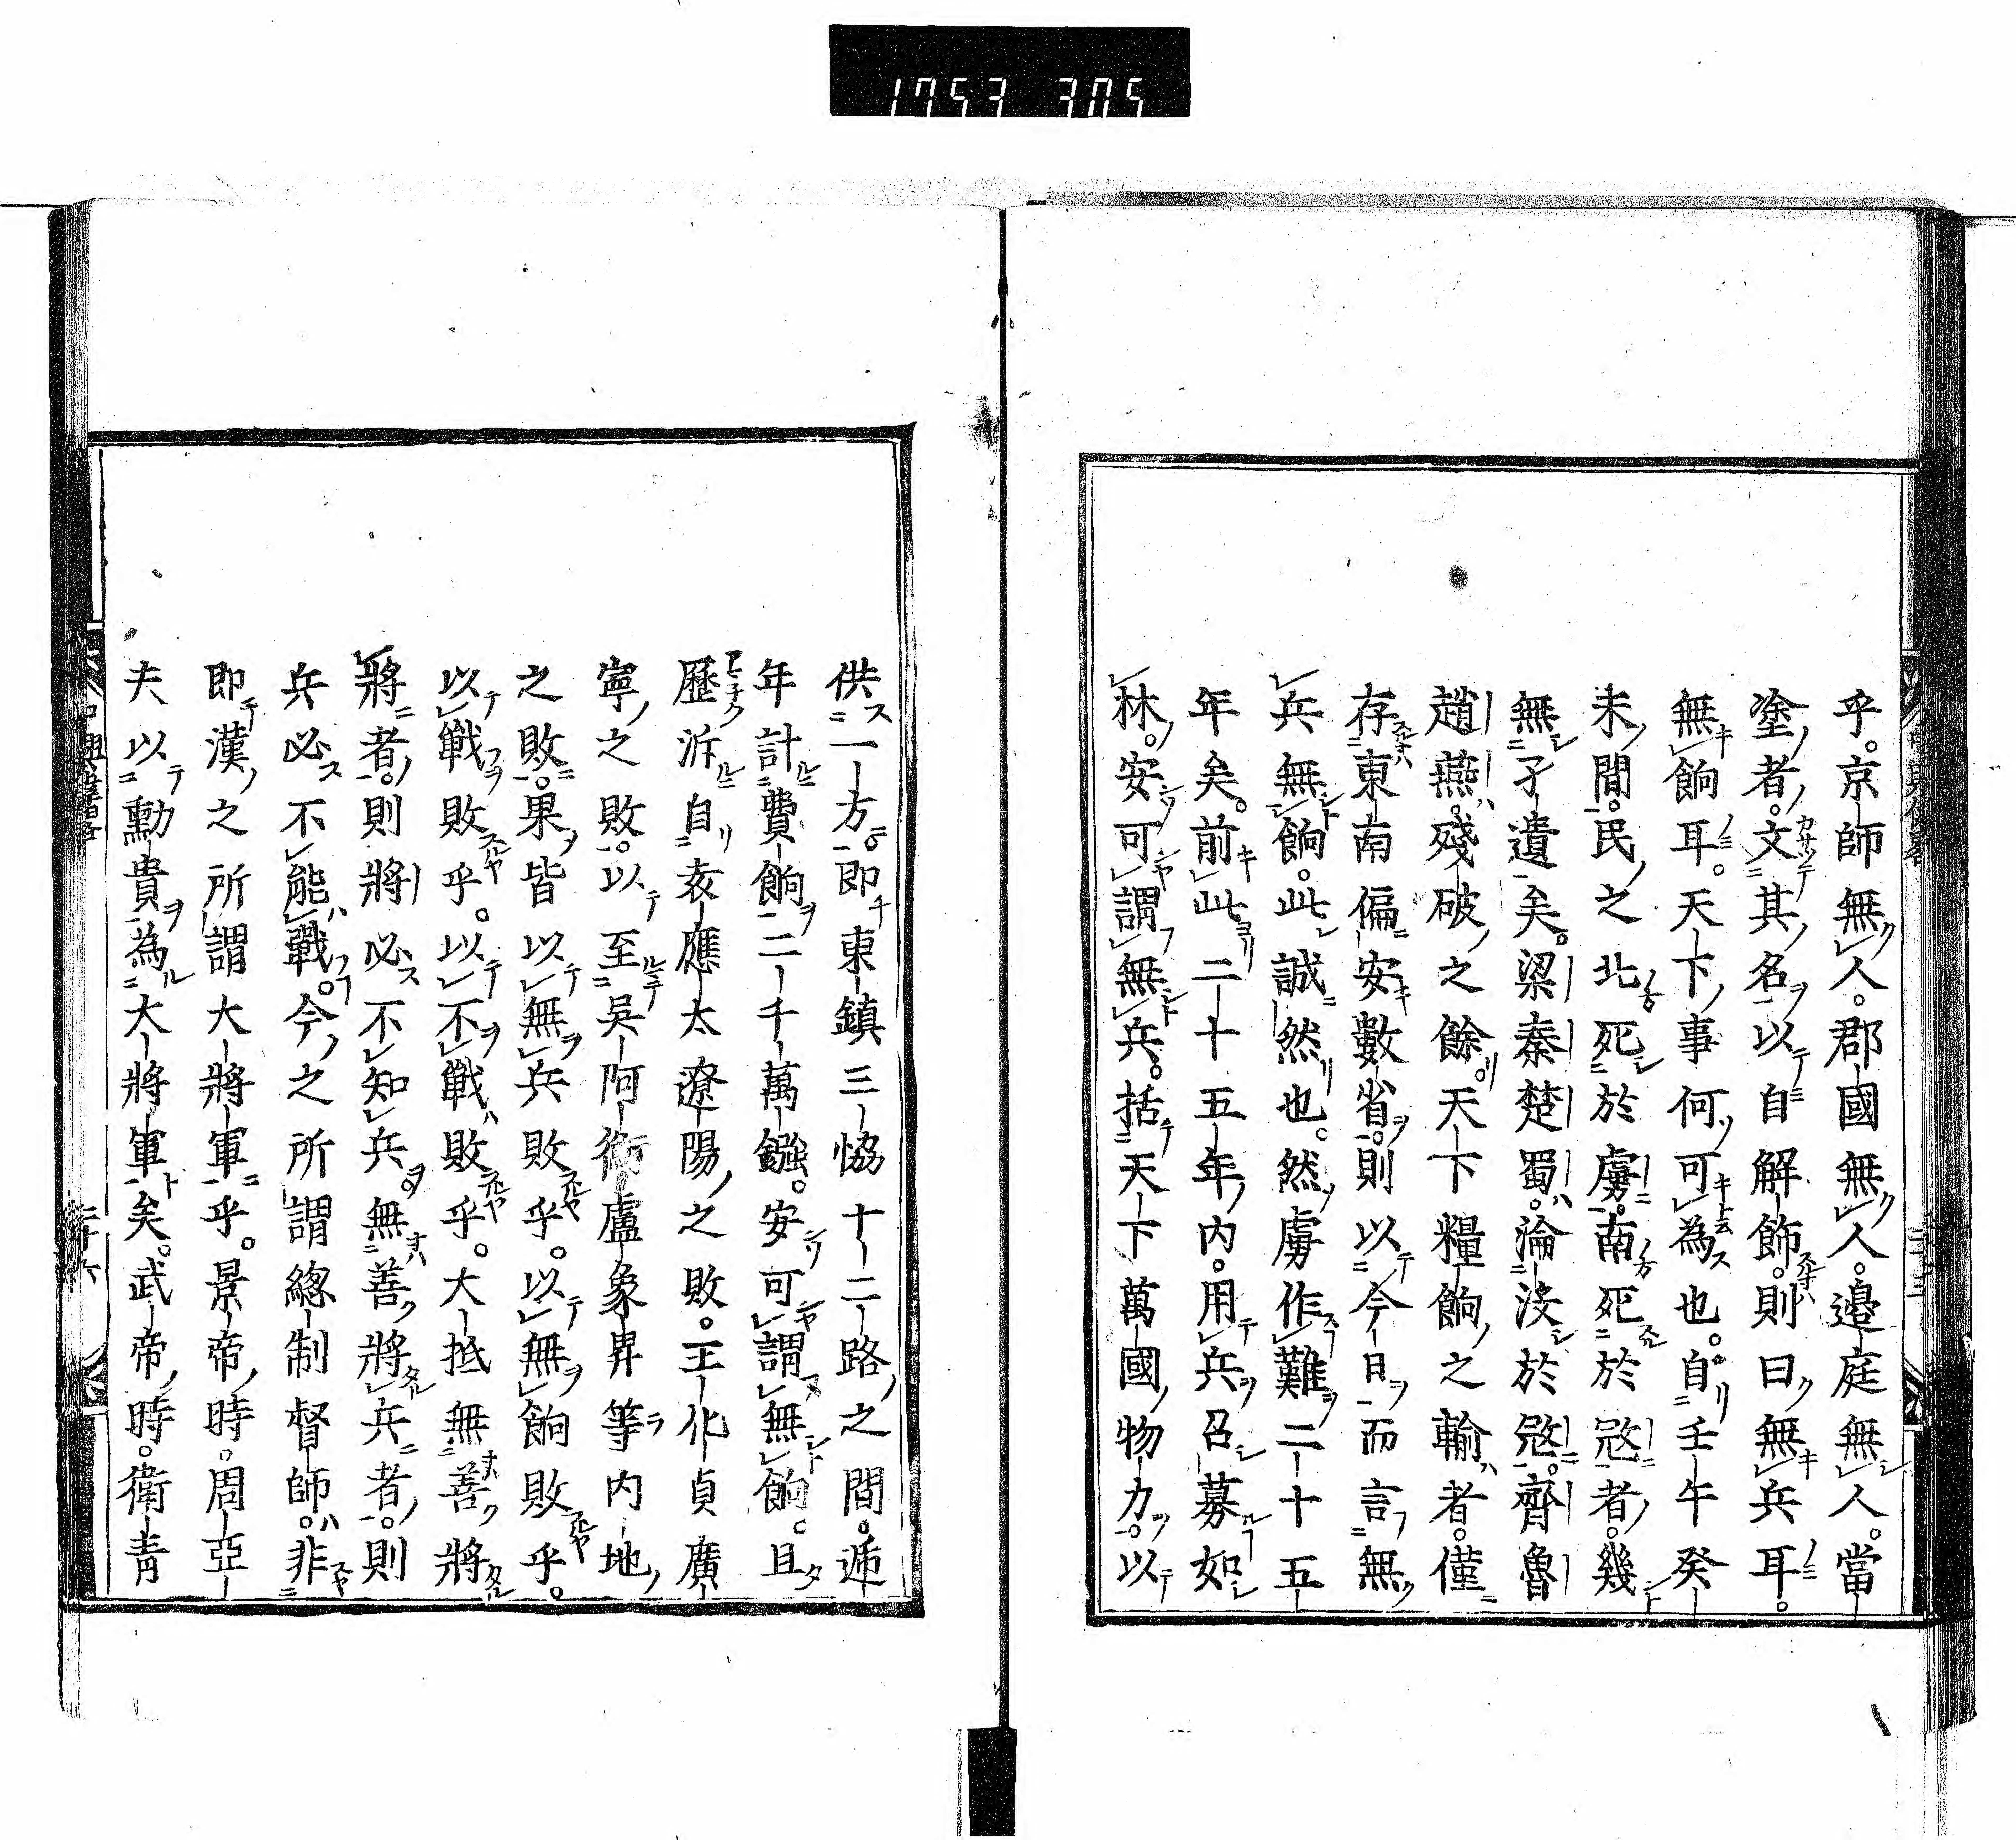 1753 305
乎。京師無人。郡國無人。邉庭無人。當
塗者。文其名以自解飾。則曰無兵耳。
無餉耳。天下事何可為也。自壬午癸
未間。民之北死於虜。南死於㓂者。幾
無孑遺矣。梁秦楚蜀。淪沒於㓂。齊魯
趙燕。殘破之餘。天下糧餉之輸者。僅
存東南偏安數省。則以今日而言無
兵無餉。此誠然也。然虜作難二十五
年矣。前此二十五年內。用兵召募如
林。安可謂無兵。括天下萬國物力。以
供一方。即東鎮三恊十二路之間。逓
年計費餉二千萬鏹。安可謂無餉。且
歷泝自袁應太遼陽之敗。王化貞廣
寧之敗。以至吳阿衡盧象昇等內地
之敗。果皆以無兵敗乎。以無餉敗乎。
以戰敗乎。以不戰敗乎。大抵無善將
將者。則將必不知兵。無善將兵者。則
兵必不能戰。今之所謂總制督師。非
即漢之所謂大將軍乎。景帝時。周亞
夫以勳貴為大將軍矣。武帝時。衛青